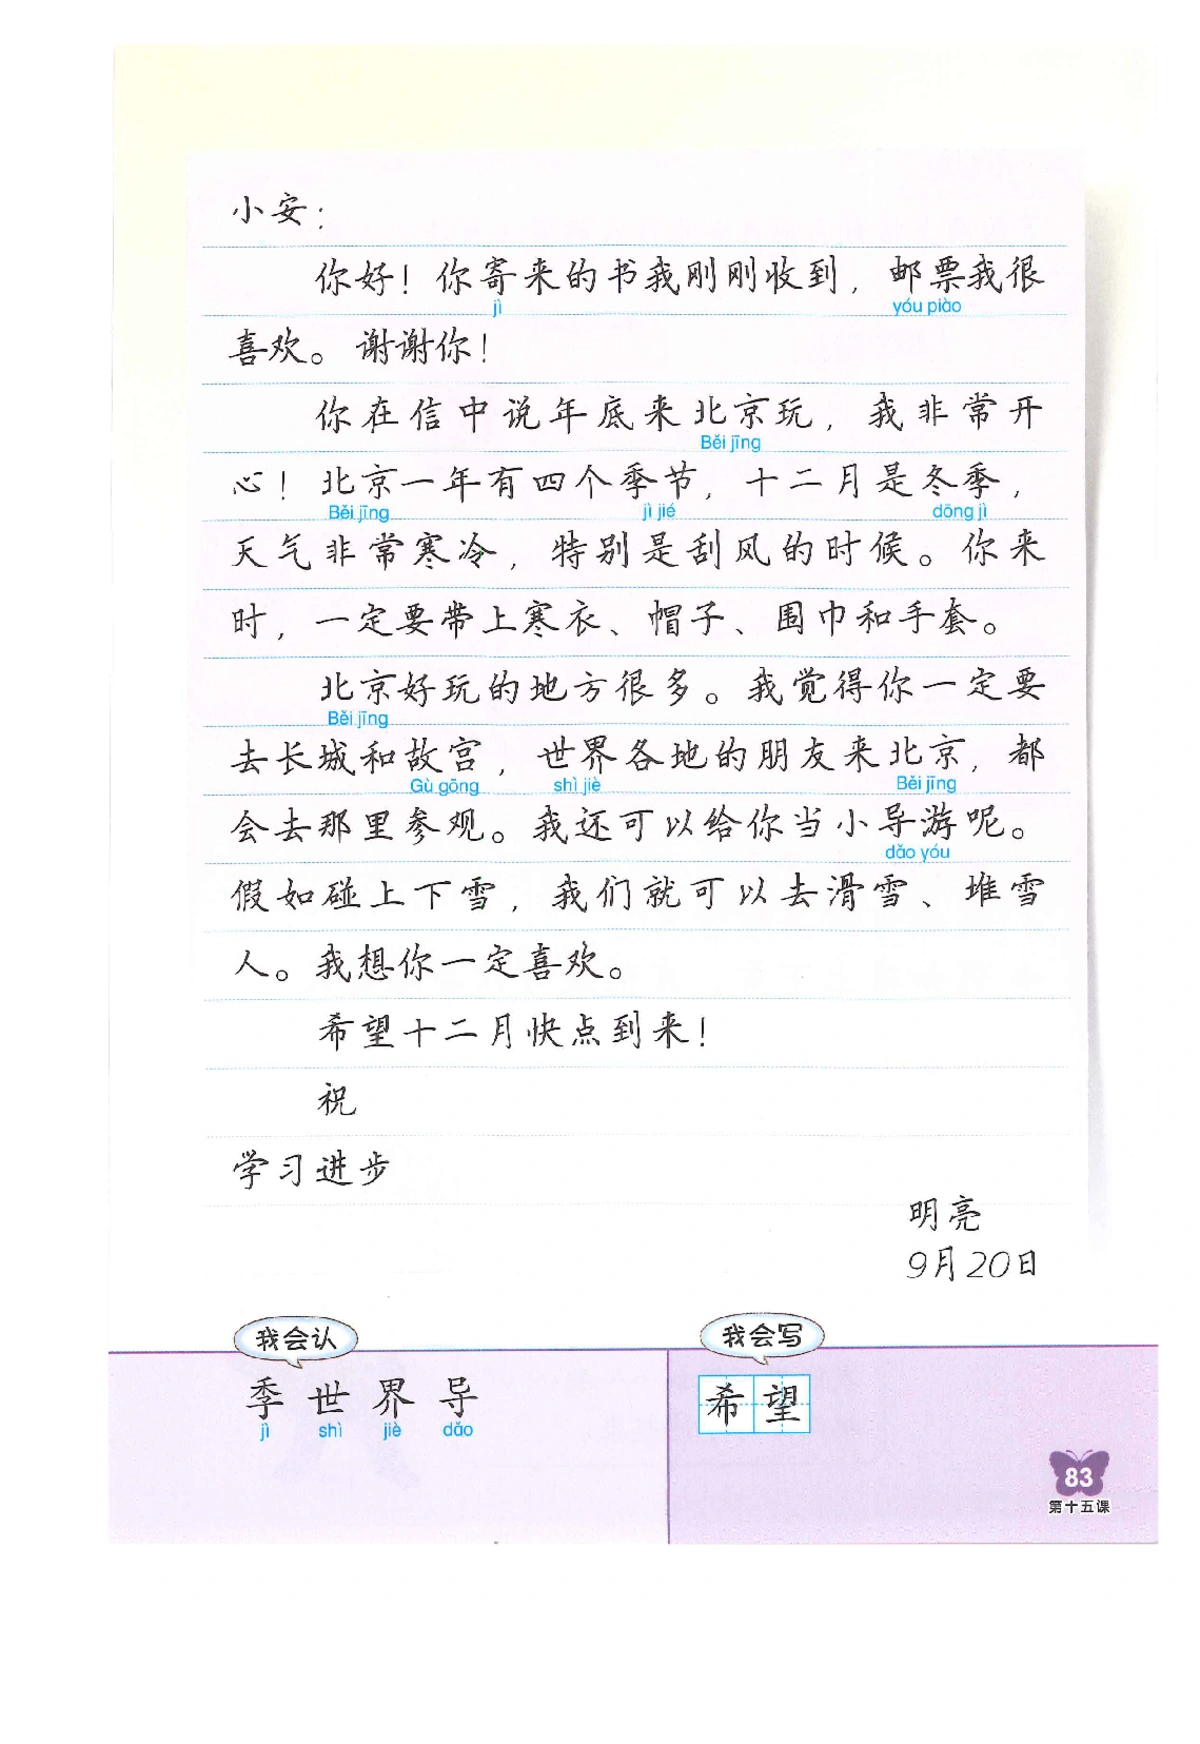 小安：
你好！你寄来的书我刚刚收到，邮票我很
jì yóu piào
喜欢。谢谢你！
你在信中说年底来北京玩，我非常开
Běi jīng
心！北京一年有四个季节，十二月是冬季，
Běi jīng jì jié dōng jì
天气非常寒冷，特别是刮风的时候。你来
时，一定要带上寒衣、帽子、围巾和手套。
北京好玩的地方很多。我觉得你一定要
Běi jīng
去长城和故宫，世界各地的朋友来北京，都
Gù gōng shì jiè Běi jīng
会去那里参观。我还可以给你当小导游呢。
dǎo yóu
假如碰上下雪，我们就可以去滑雪、堆雪
人。我想你一定喜欢。
希望十二月快点到来！
祝
学习进步
明亮
9月20日
我会认
季 世 界 导
jì shì jiè dǎo
我会写
希望
83
第十五课